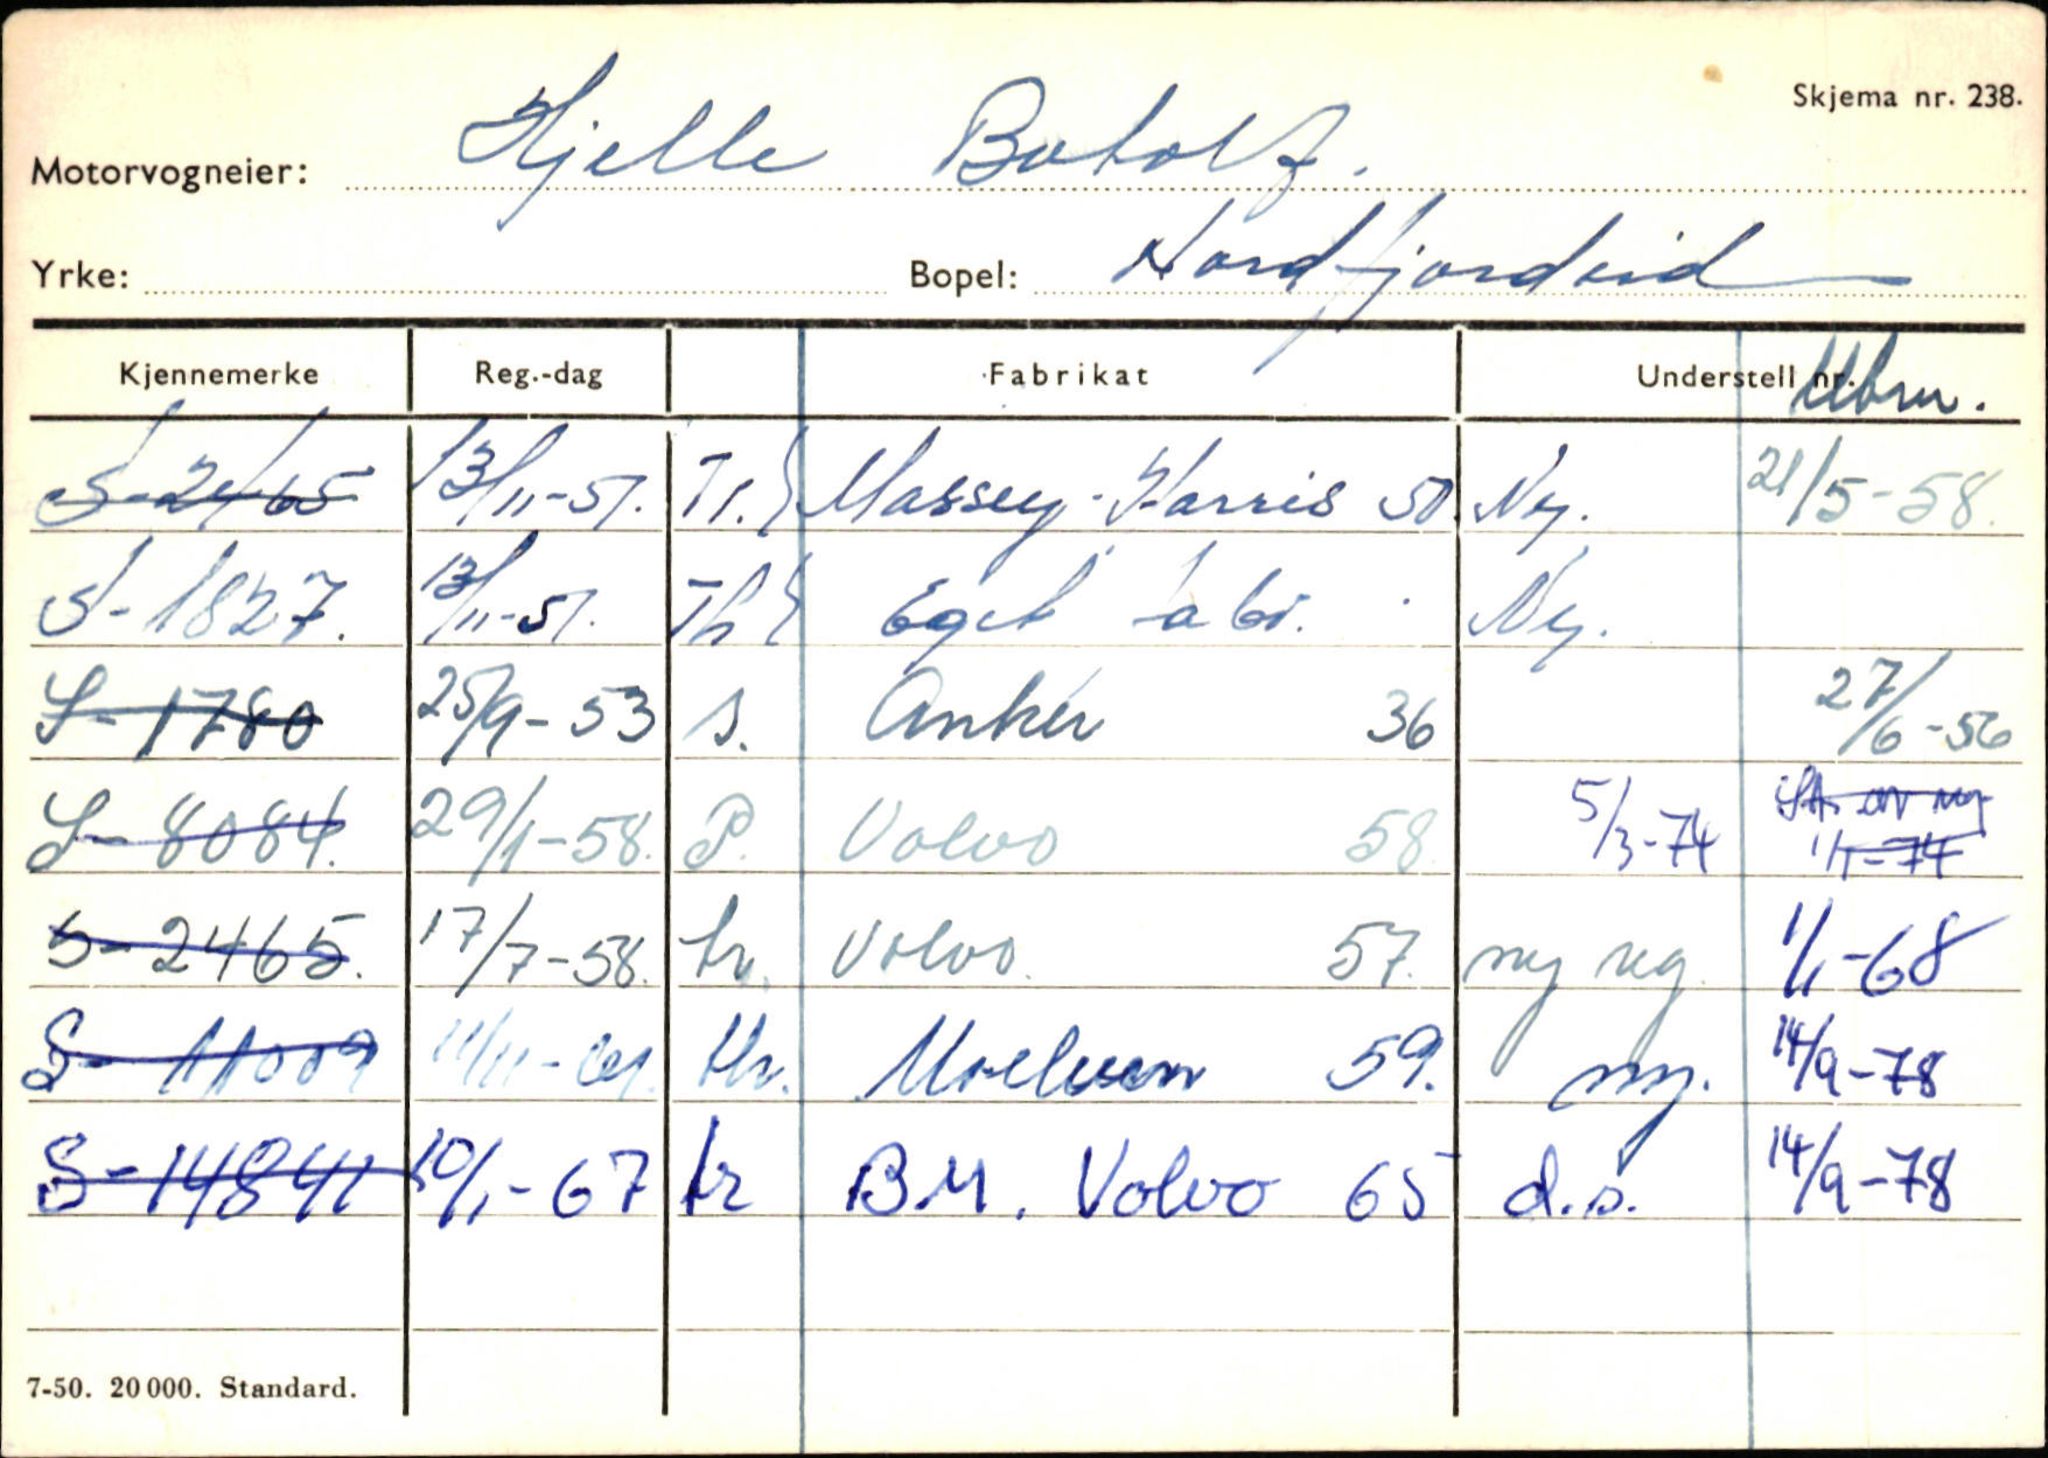 Skjema nr. 238.
Motorvogneier: Hjelle Botolf.
Yrke: Bopel: Nordfjordeid
Kjennemerke Reg.-dag Fabrikat Understell nr. Ubru.
S-2465 13/11-51. Tr. Massey-Harris 50 Ny. 21/5-58.
S-1827. 13/11-51. Th Eget fabr. Ny.
S-1780 25/9-53 s. Anker 36 27/6-56
S-8084. 29/1-58. P. Volvo 58 5/3-74 1/1-74
S-2465. 17/7-58. tr. Volvo. 57. ny reg. 1/1-68
S-11009 11/11-61. th. Moelven 59. ny. 14/9-78
S-14841 10/1-67 tr B.M. Volvo 65 d.s. 14/9-78
7-50. 20 000. Standard.